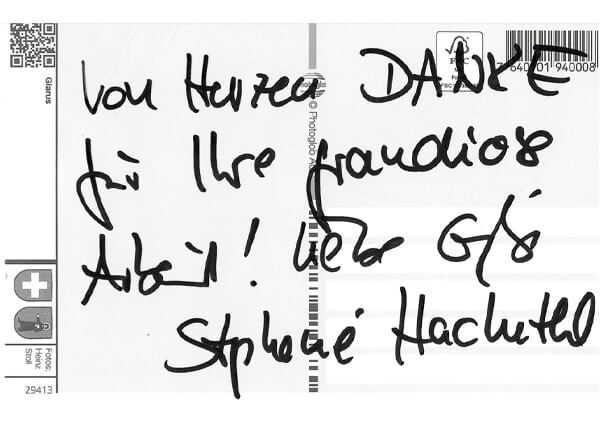 Glarus
Von Herzen DANKE
für Ihre grandiose
Arbeit! Liebe
FSC
7 640101 940008
© Photoglob AG
Fotos:
Heinz
Stoll
29413